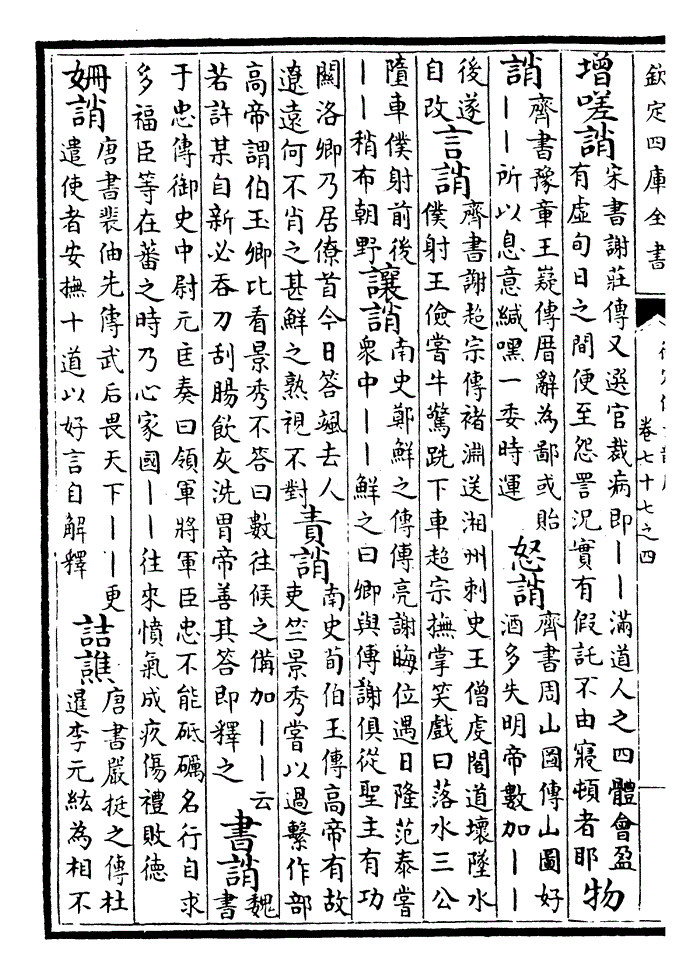 欽定四庫全書
卷七十七之四
增嗟誚
宋書謝莊傳又選官裁病即——滿道人之四體會盈
有虛旬日之間便至怨詈況實有假託不由寢頓者耶
物
誚
齊書豫章王嶷傳厝辭為鄙或貽
——所以息意緘嘿一委時運
怒誚
齊書周山圖傳山圖好
酒多失明帝數加——
後遂
自改
言誚
齊書謝超宗傳褚淵送湘州刺史王僧虔閣道壞墜水
僕射王儉嘗牛驚跣下車超宗撫掌笑戲曰落水三公
隋車僕射前後
——稍布朝野
讓誚
南史鄭鮮之傳傳亮謝晦位遇日隆范泰嘗
衆中——鮮之曰卿與傳謝俱從聖主有功
關洛卿乃居僚首今日答颯去人
遼遠何不肖之甚鮮之熟視不對
責誚
南史荀伯玉傳高帝有故
吏竺景秀嘗以過繫作部
高帝謂伯玉卿比看景秀不答曰數往候之備加——云
若許某自新必吞刀刮腸飲灰洗胃帝善其答即釋之
書誚
魏
書
于忠傳御史中尉元匡奏曰領軍將軍臣忠不能砥礪名行自求
多福臣等在蕃之時乃心家國——往來憤氣成疢傷禮敗德
姍誚
唐書裴伷先傳武后畏天下——更
遣使者安撫十道以好言自解釋
詰譙
唐書嚴挺之傳杜
暹李元紘為相不